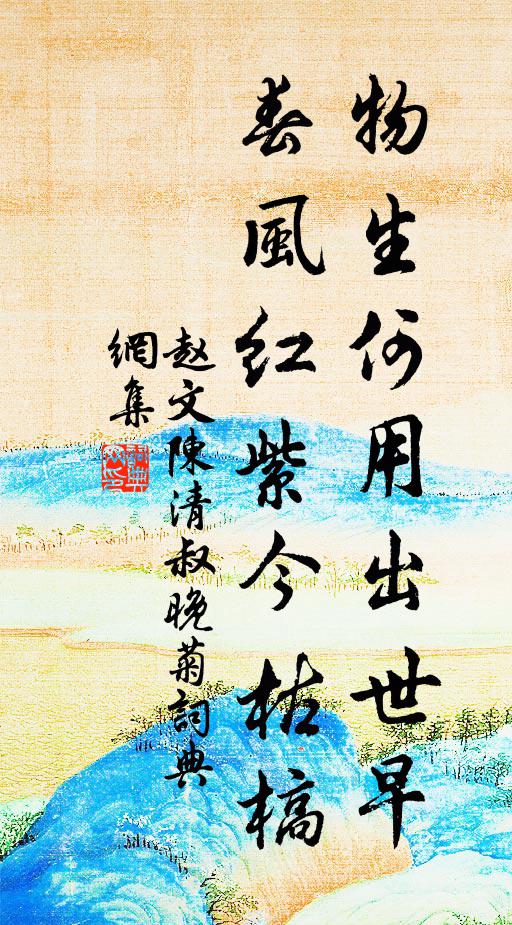 物生何用出世早
春風紅紫今枯槁
赵文陳清叔晚菊詞典
網集